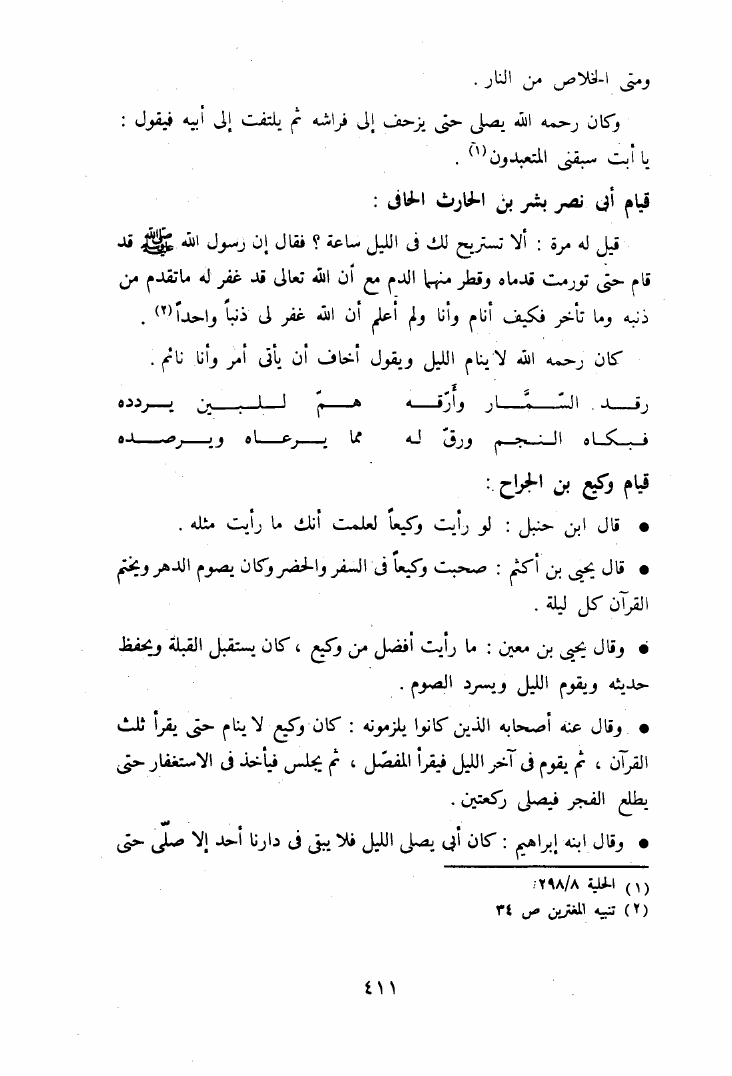 ومتى الخلاص من النار .
وكان رحمه الله يصلى حتى يزحف إلى فراشه ثم يلتفت إلى أبيه فيقول :
يا أبت سبقنى المتعبدون(١) .
قيام أبى نصر بشر بن الحارث الحافى :
قيل له مرة : ألا تستريح لك فى الليل ساعة ؟ فقال إن رسول الله ﷺ قد
قام حتى تورمت قدماه وقطر منهما الدم مع أن الله تعالى قد غفر له ماتقدم من
ذنبه وما تأخر فكيف أنام وأنا ولم أعلم أن الله غفر لى ذنباً واحداً(٢) .
كان رحمه الله لا ينام الليل ويقول أخاف أن يأتى أمر وأنا نائم .
رقـد السُّـمَّـار وأَرّقـه هـمّ لـلـبـين يـردده
فـبـكـاه الـنـجـم ورقّ لـه مما يـرعـاه ويـرصـده
قيام وكيع بن الجراح :
• قال ابن حنبل : لو رأيت وكيعاً لعلمت أنك ما رأيت مثله .
• قال يحيى بن أكثم : صحبت وكيعاً فى السفر والحضر وكان يصوم الدهر ويختم
القرآن كل ليلة .
• وقال يحيى بن معين : ما رأيت أفضل من وكيع ، كان يستقبل القبلة ويحفظ
حديثه ويقوم الليل ويسرد الصوم .
• وقال عنه أصحابه الذين كانوا يلزمونه : كان وكيع لا ينام حتى يقرأ ثلث
القرآن ، ثم يقوم فى آخر الليل فيقرأ المفصّل ، ثم يجلس فيأخذ فى الاستغفار حتى
يطلع الفجر فيصلى ركعتين .
• وقال ابنه إبراهيم : كان أبى يصلى الليل فلا يبقى فى دارنا أحد إلا صلّى حتى
(١) الحلية ٢٩٨/٨ .
(٢) تنبيه المغترين ص ٣٤
٤١١